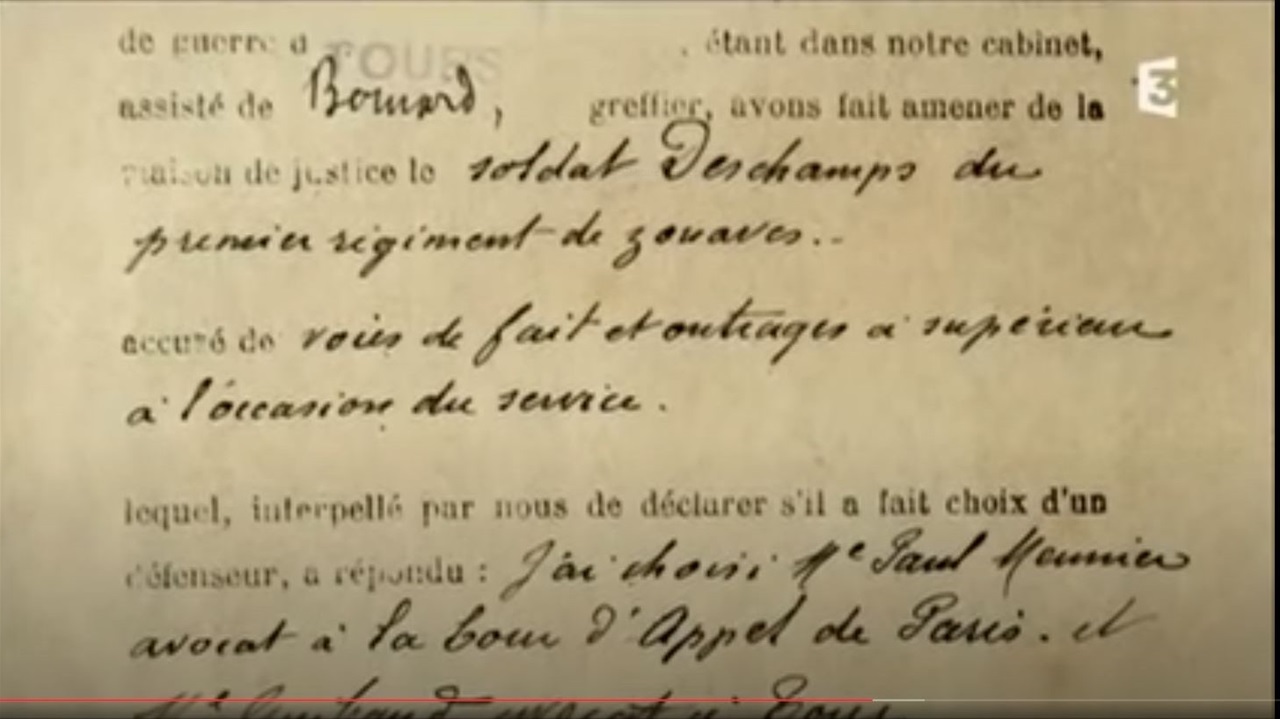 de guerre à TOURS , étant dans notre cabinet,
assisté de Bonnard, greffier, avons fait amener de la
maison de justice le soldat Deschamps du
premier régiment de zouaves..
accusé de voies de fait et outrages à supérieur
à l'occasion du service.
lequel, interpellé par nous de déclarer s'il a fait choix d'un
défenseur, a répondu : J'ai choisi Me Paul Meunier
avocat à la Cour d'Appel de Paris. et
3